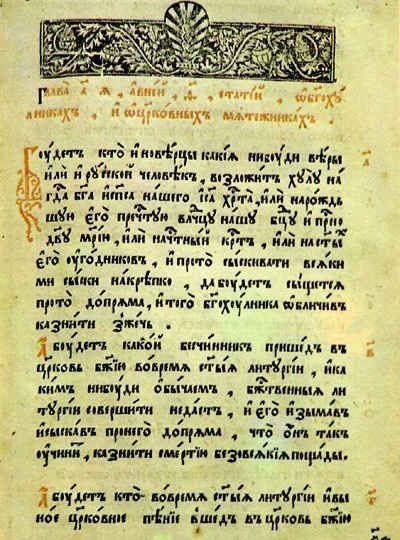 Глава а҃ я , а в̾ней , ѳ҃ , статїй , ѡ҆ бг҃охꙋ
лникахъ , и҆ ѡ҆ цр҃ковныхъ мѧтежникахъ
Боудетъ кто и҆новѣрцы какїѧ нибоуди вѣры
и҆лѝ и҆ рꙋской человѣкъ , возложитъ хꙋлꙋ на
гдⷭ҇а бг҃а и҆ сп҃са нашего і҆с҃а хрⷭ҇та , и҆лѝ на рождь
шꙋю е҆го̀ прчⷭ҇тꙋю влⷣчцꙋ нашꙋ бцⷣꙋ и҆ прⷭ҇но
дв҃ꙋ мр҃їю , и҆лѝ на чтⷭ҇ный крⷭ҇тъ , и҆лѝ на ст҃ыхъ
е҆го̀ оу҆годниковъ , и҆ про то̀ сыскивати всѧки
ми сыски накрѣпко , да боудетъ сыщетсѧ
про то̀ допрѧма , и҆ того̀ бг҃охоулника ѡ҆бличивъ
казнити з̾жечь .
А боудетъ какой бесчинникъ пришедъ въ
цр҃ковь бж҃їю во времѧ ст҃ыѧ литꙋргїи , и҆ ка
кимъ нибоуди ѻ҆бычаемъ , бжⷭ҇твенныѧ ли
тꙋргїи совершити недастъ , и҆ е҆го̀ и҆зымавъ
и҆ сыскавъ про него̀ допрѧма , что ѻ҆нъ такъ
оу҆чинитъ , казнити смертїю безовсѧкїѧ пощады .
А боудетъ кто во времѧ ст҃ыѧ литꙋргїи и҆ в̾ы
ное цр҃ковное пѣнїе вшедъ въ цр҃ковь бж҃їю
а҃
в҃